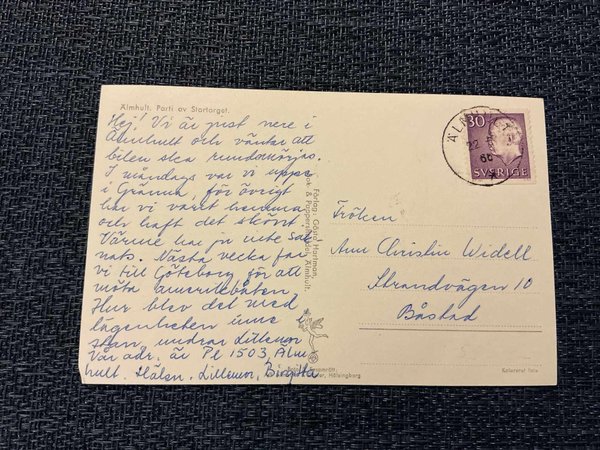 Älmhult. Parti av Stortorget.
Hej! Vi är just nere i
Älmhult och väntar att
bilen ska rundsmörjas.
I måndags var vi uppe
i Gränna, för övrigt
har vi varit hemma
och haft det skönt.
Värme har ju inte sak-
nats. Nästa vecka far
vi till Göteborg för att
möta amerikabåten.
Hur blev det med
lägenheten inne i
stan, undrar Lillemor
Vår adr. är Pl 1503, Älm-
hult. Hälsn. Lillemor, Birgitta
Förlag: Gösta Hartman,
Bok- & Pappershandel, Älmhult.
30
ÄLMHULT
22
66
SVERIGE
Fröken
Ann Christin Widell
Strandvägen 10
Båstad
Hälsingborg
Kolorerat foto